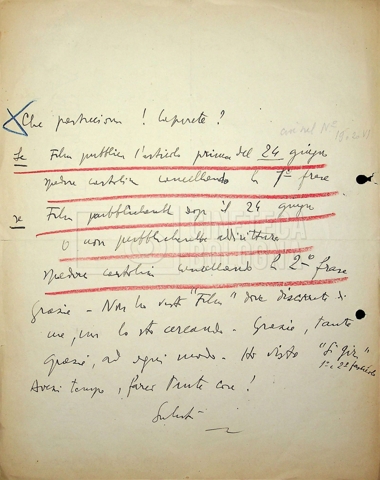 Che pasticcione ! Capirete ?
Se Film pubblica l'articolo prima del 24 giugno
spedire cartolina cancellando la 1ª frase
se Film pubblicherà dopo il 24 giugno
o non pubblicherà addirittura
spedire cartolina cancellando la 2ª frase
Grazie - Non ho visto "Film" dove discorrete di
me, ma lo sto cercando - Grazie, tante
grazie, ad ogni modo - Ho visto "Si gira"
1º e 2º fascicolo
Avessi tempo, farei tante cose !
Saluti
CINETECA